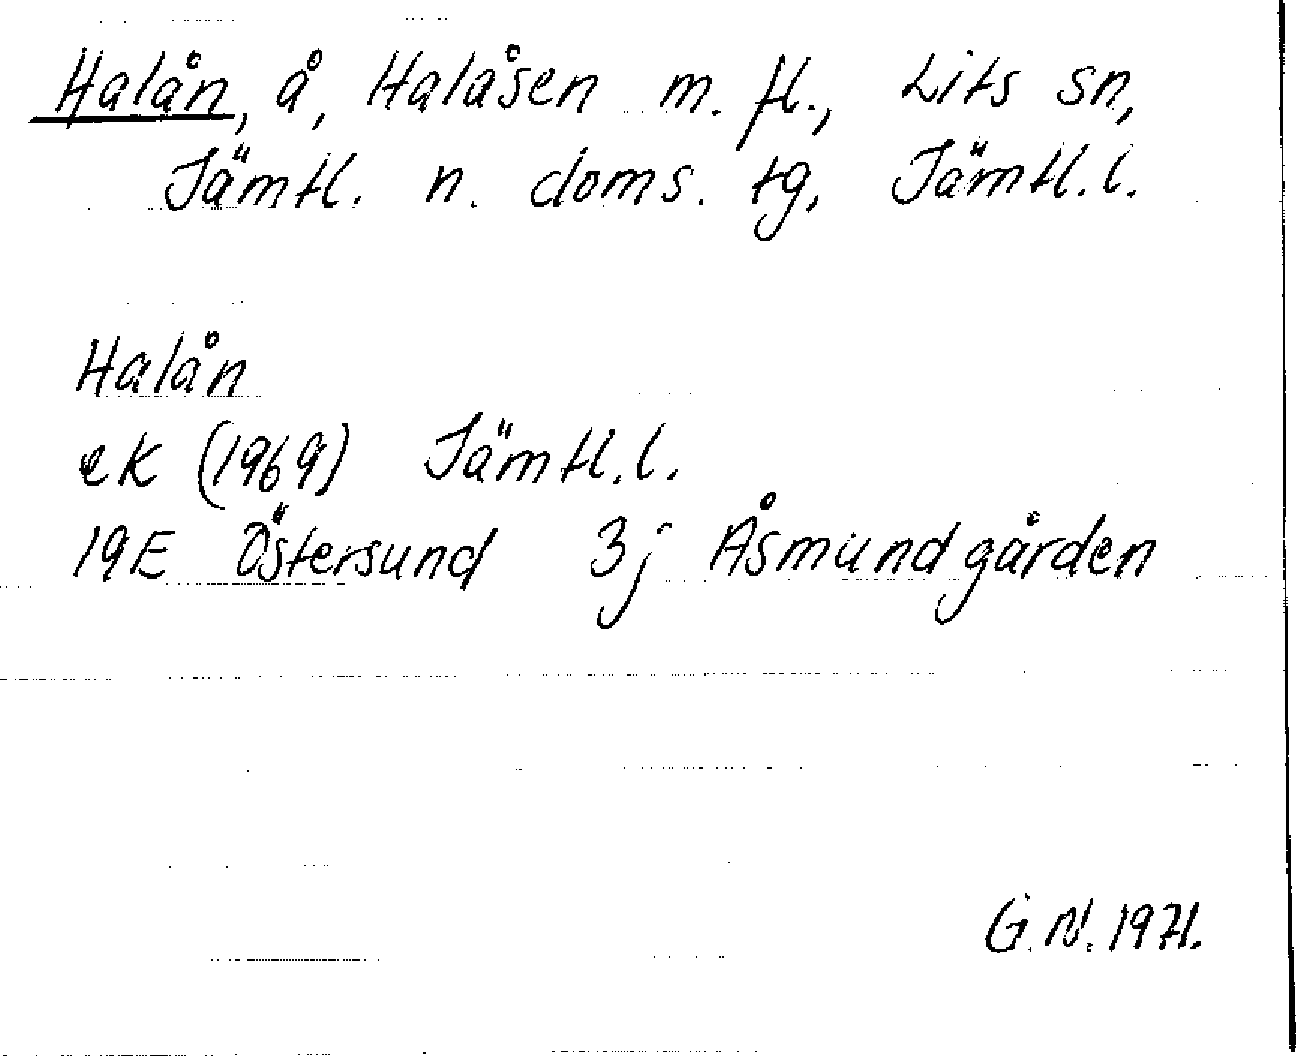 Halån, å, Halåsen m. fl., Lits sn,
Jämtl. n. doms. tg, Jämtl. l.
Halån
ek (1969) Jämtl. l.
19E Östersund 3j Åsmundgården
G. N. 1971.